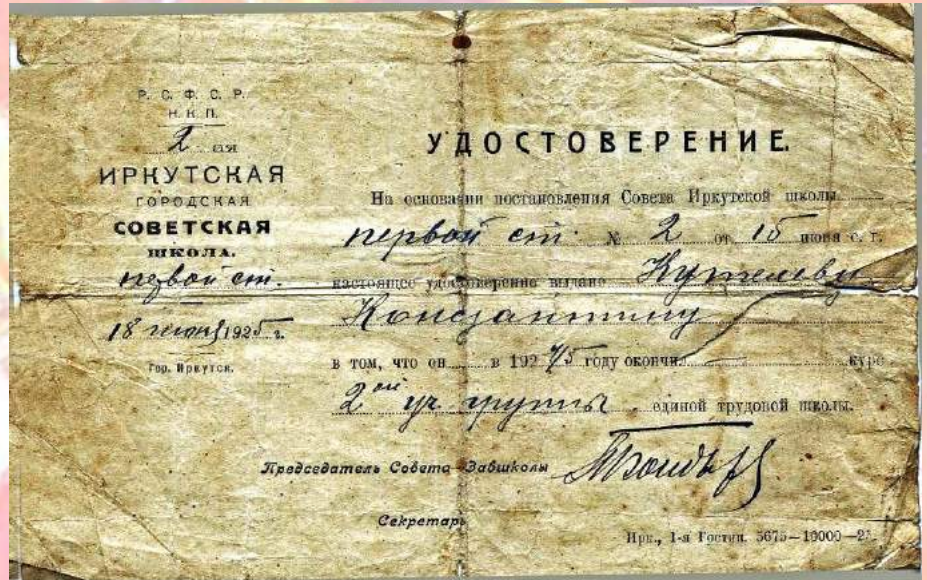 Р. С. Ф. С. Р.
Н. К. П.
2 ая
ИРКУТСКАЯ
ГОРОДСКАЯ
СОВЕТСКАЯ
ШКОЛА.
первой ст.
18 июня 1925 г.
Гор. Иркутск.
УДОСТОВЕРЕНИЕ.
На основании постановления Совета Иркутской школы
первой ст. № 2 от 15 июня с. г.
настоящее удостоверение выдано
Константину
в том, что он в 192 4/5 году окончил курс
2ой уч группы единой трудовой школы.
Председатель Совета Завшколы
Секретарь
Ирк., 1-я Гостип. 5675—10000—25.